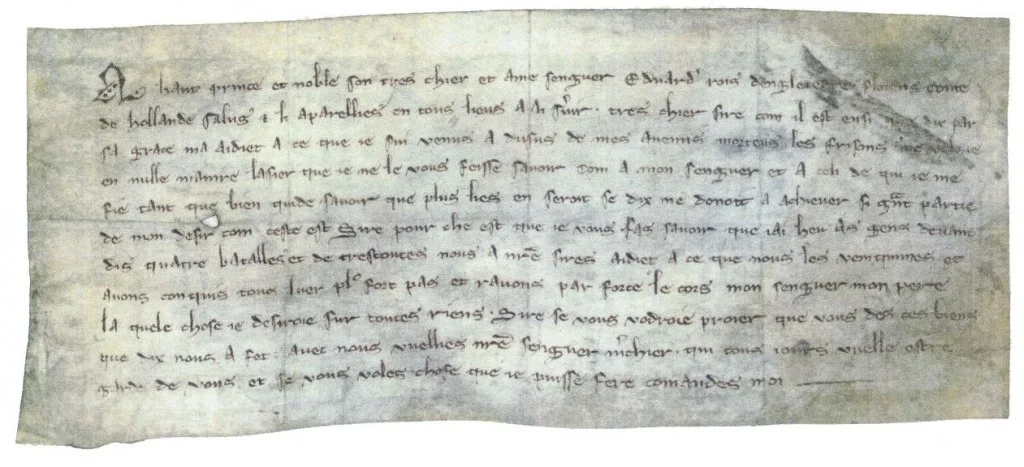 A haut prince et noble son tres chier et ame senguer Edward rois dengletere Florens conte
de hollande salus & li aparellies en tous lieus a li sʼuir. tres chier sire com il est ensi que dix par
sa grace ma aidiet a ce que je sui venus a dusus de mes anemis morteus les frisons
en nulle maniere lasier que je ne le vous feisse savoir com a mon senguer et a celi de qui je me
fie tant que bien quide savoir que plus lies en seroit se dix me donoit a achiever si gnt partie
de mon desir com ceste est Sire pour che est que je vous fas savoir que jai heu as gens devant
dis quatre batalles et de trestoutes nous a nre sires aidiet a ce que nous les venquimes et
avons conquis tous luer pl⁹ fort pas et ravons par force le cors mon senguer mon pere
la quele chose je desiroie sur toutes riens. Sire se vous vodroie proier que vous des ces biens
que dix nous a fet. avec nous vuellies nre senguer mʼchier. qui tous jours vuelle estre
garde de vous et se vous voles chose que je puisse fere comandes moi